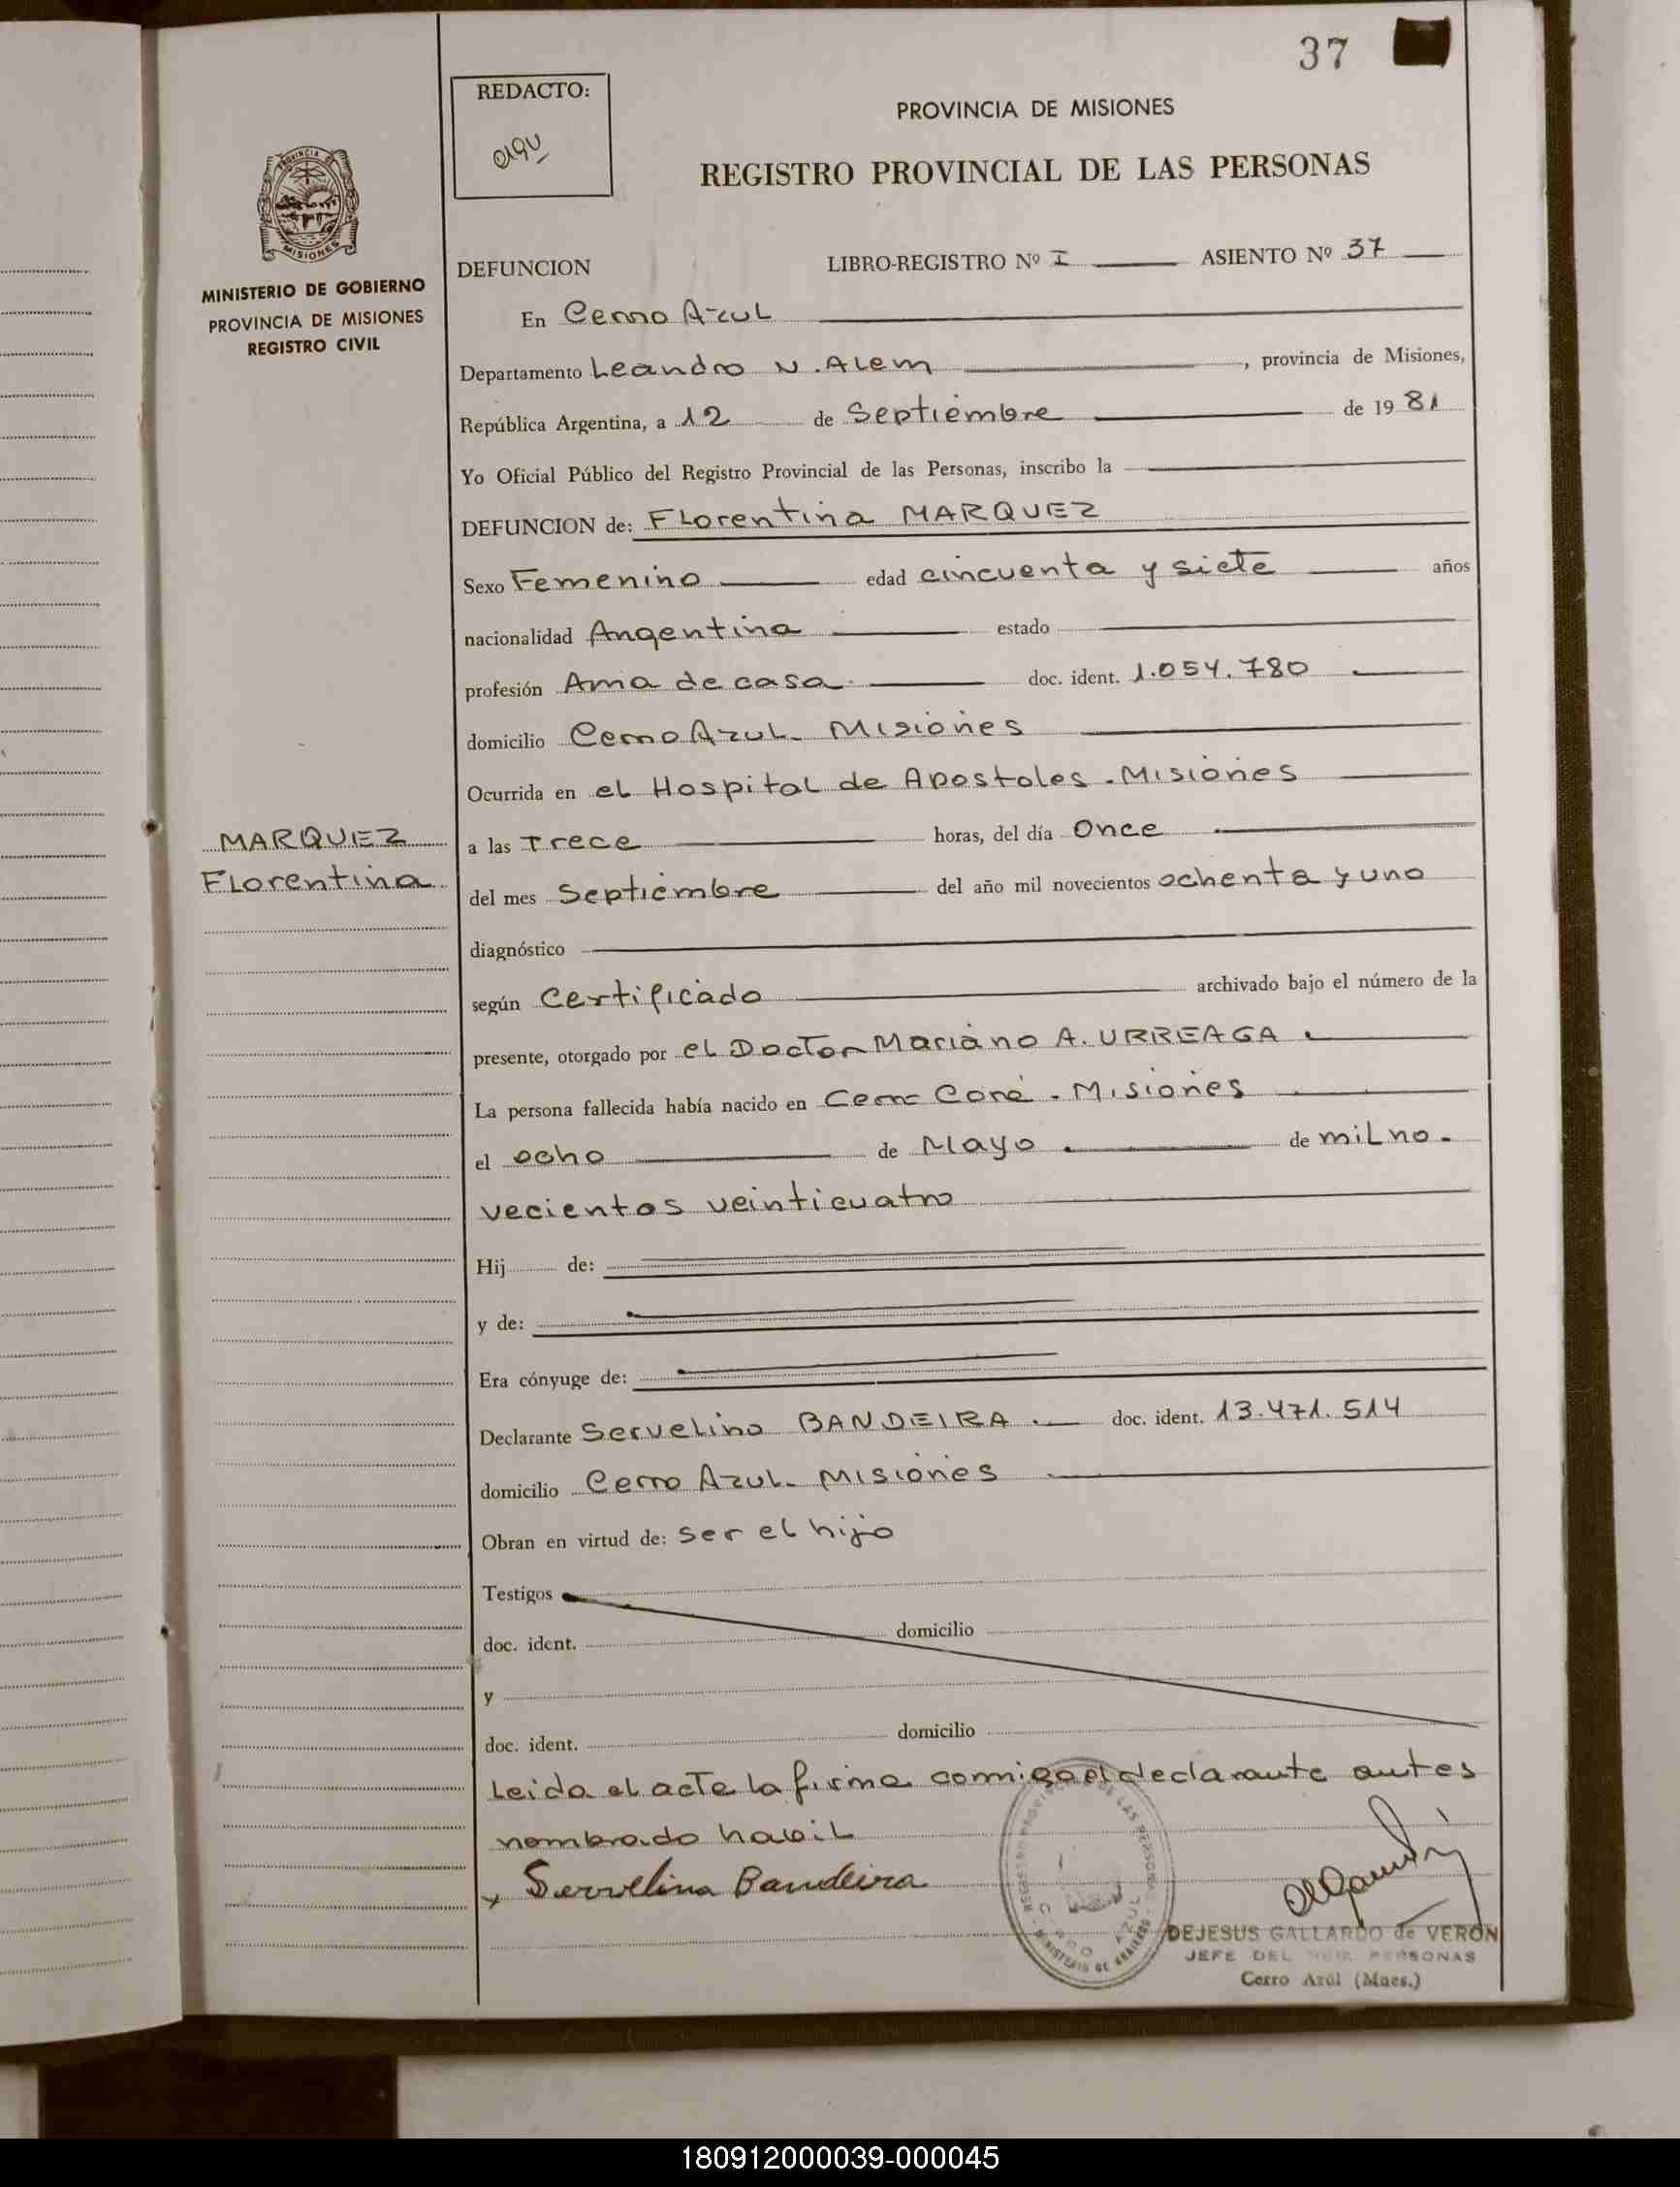 37
REDACTO:
PROVINCIA DE MISIONES
REGISTRO PROVINCIAL DE LAS PERSONAS
PROVINCIA DE
MISIONES
MINISTERIO DE GOBIERNO
PROVINCIA DE MISIONES
REGISTRO CIVIL
DEFUNCION LIBRO-REGISTRO Nº I ASIENTO Nº 37
En Cerro Azul
Departamento Leandro N. Alem, provincia de Misiones,
República Argentina, a 12 de Septiembre de 1981
Yo Oficial Público del Registro Provincial de las Personas, inscribo la
DEFUNCION de: Florentina MARQUEZ
Sexo Femenino edad cincuenta y siete años
nacionalidad Argentina estado
profesión Ama de casa. doc. ident. 1.054.780
domicilio Cerro Azul- Misiones
Ocurrida en el Hospital de Apostoles. Misiones
MARQUEZ
Florentina
a las Trece horas, del día Once
del mes Septiembre del año mil novecientos ochenta y uno
diagnóstico
según Certificado archivado bajo el número de la
presente, otorgado por el Doctor Mariano A. URREAGA.
La persona fallecida había nacido en Cerro Corá. Misiones
el ocho de Mayo. de mil no-
vecientos veinticuatro
Hij de:
y de:
Era cónyuge de:
Declarante Servelino BANDEIRA. doc. ident. 13.471.514
domicilio Cerro Azul- Misiones
Obran en virtud de: ser el hijo
Testigos
doc. ident. domicilio
y
doc. ident. domicilio
Leida el acta la firma conmigo el declarante antes
nombrado habil
x Servelino Bandeira
DEJESUS GALLARDO de VERON
JEFE DEL PERSONAS
Cerro Azul (Mnes.)
180912000039-000045